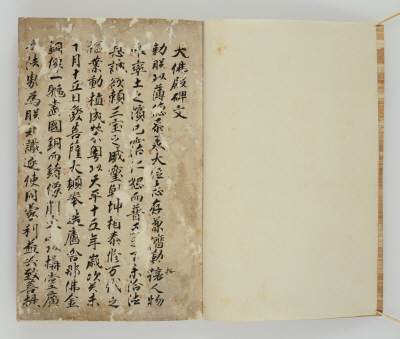 大佛殿碑文
勅朕以薄德恭承大位志存兼濟勤人物
率土之濱已霑仁恕而普天之下未浴法
恩誠欲賴三宝之威靈乾坤相泰修万代之
福業動植咸榮粤以天平十五年歲次癸未
十月十五日發菩薩大願奉造盧舍那佛金
銅像一軀盡國銅而鎔像削大山以構堂廣
及法界為朕知識遂使同蒙利益共致菩提